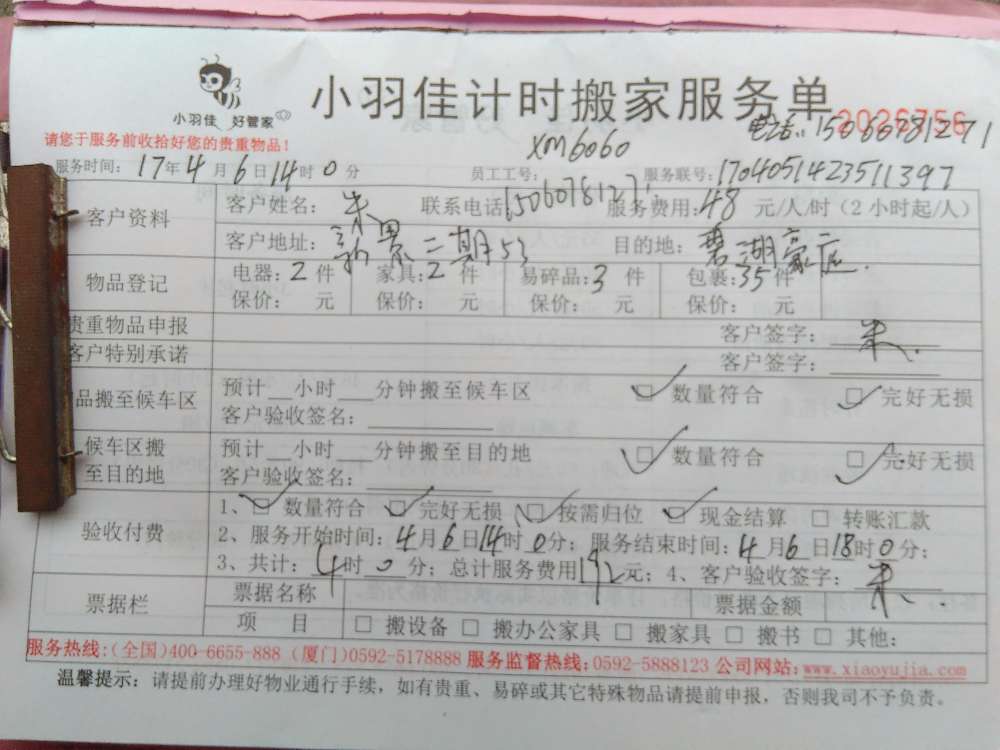 小羽佳计时搬家服务单
小羽佳 好管家
2026756
电话:15060781271
请您于服务前收拾好您的贵重物品!
XM6060
服务时间: 17年4月6日14时0分 员工工号: 服务联号:1704051423511397
客户资料 客户姓名: 朱 联系电话15060781271 服务费用:48 元/人/时(2小时起/人)
客户地址: 新景二期53 目的地: 碧湖豪庭
物品登记 电器:2件 家具:2件 易碎品:3件 包裹:35件
保价: 元 保价: 元 保价: 元 保价: 元
贵重物品申报 客户签字: 朱
客户特别承诺 客户签字:
品搬至候车区 预计__小时___分钟搬至候车区 ☑ 数量符合 ☑ 完好无损
客户验收签名:
候车区搬至目的地 预计__小时___分钟搬至目的地 ☑ 数量符合 ☑ 完好无损
客户验收签名:
验收付费 1、☑ 数量符合 ☑ 完好无损 ☑ 按需归位 ☑ 现金结算 □ 转账汇款
2、服务开始时间:4月6日14时0分; 服务结束时间:4月6日18时0分;
3、共计:4时0分; 总计服务费用192元; 4、客户验收签字: 朱
票据栏 票据名称 票据金额
项 目 □ 搬设备 □ 搬办公家具 □ 搬家具 □ 搬书 □ 其他:
服务热线:(全国)400-6655-888 (厦门)0592-5178888 服务监督热线:0592-5888123 公司网站:www.xiaoyujia.com
温馨提示: 请提前办理好物业通行手续,如有贵重、易碎或其它特殊物品请提前申报,否则我司不予负责。